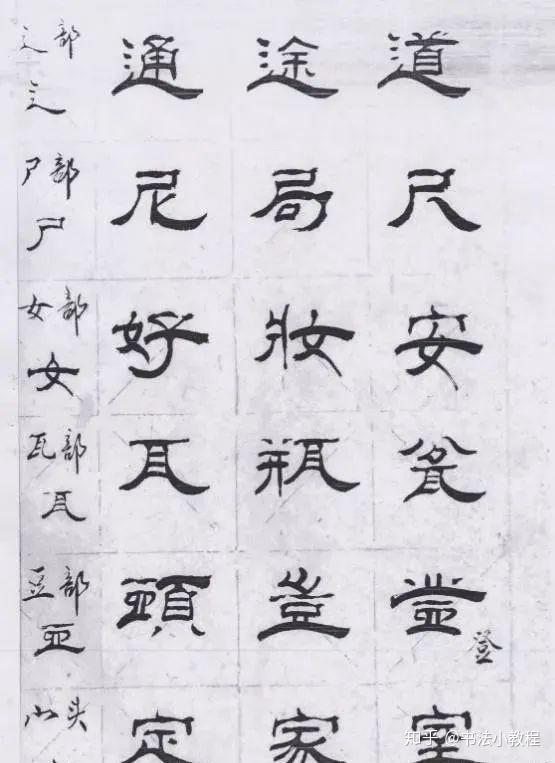 辶部 辶 通 途 道
尸部 尸 尼 局 尺
女部 女 好 妝 安
瓦部 瓦 瓦 瓶 瓮
豆部 豆 頭 豈 登 登
宀头 定 家 室
知乎 @书法小教程